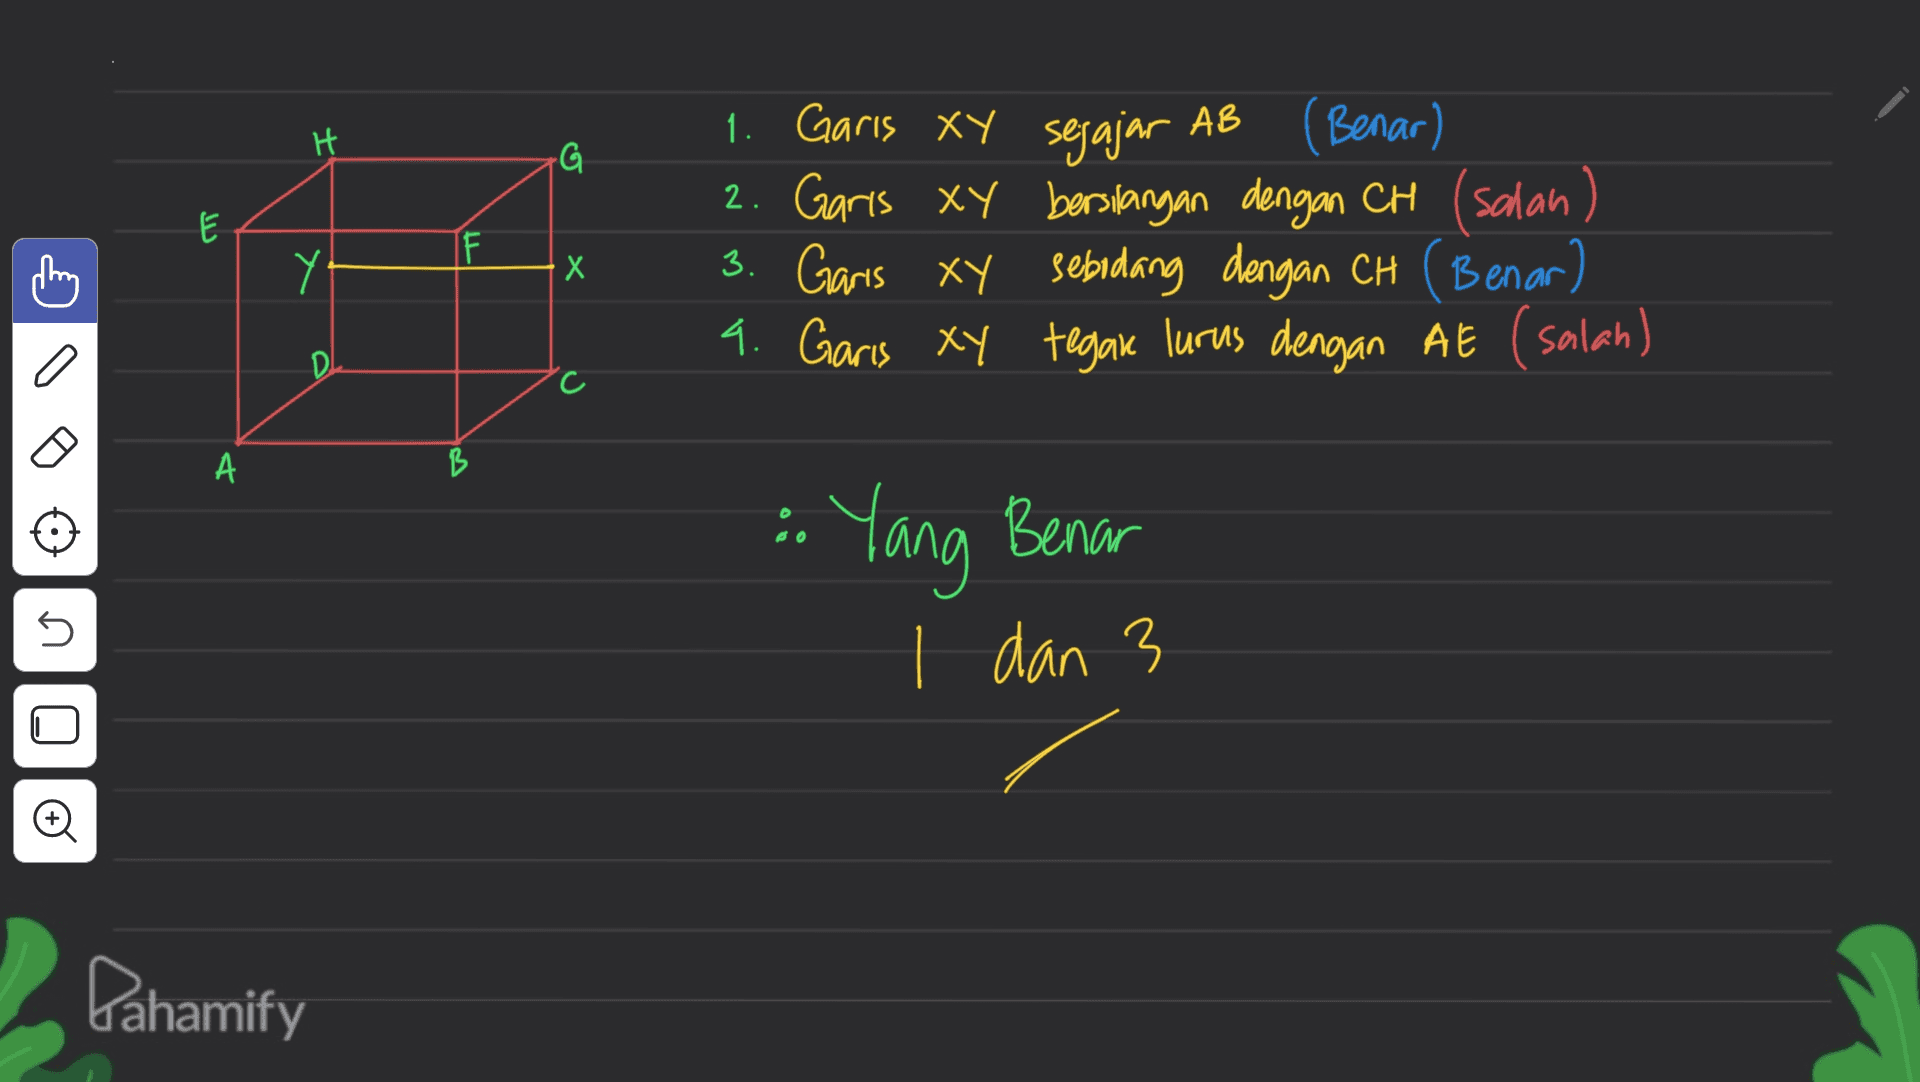 H
G
E
F
Y
X
D
C
A
B
1. Garis XY sejajar AB (Benar)
2. Garis XY bersilangan dengan CH (Salah)
3. Garis XY sebidang dengan CH (Benar)
4. Garis XY tegak lurus dengan AE (salah)
∴ Yang Benar
1 dan 3
Pahamify